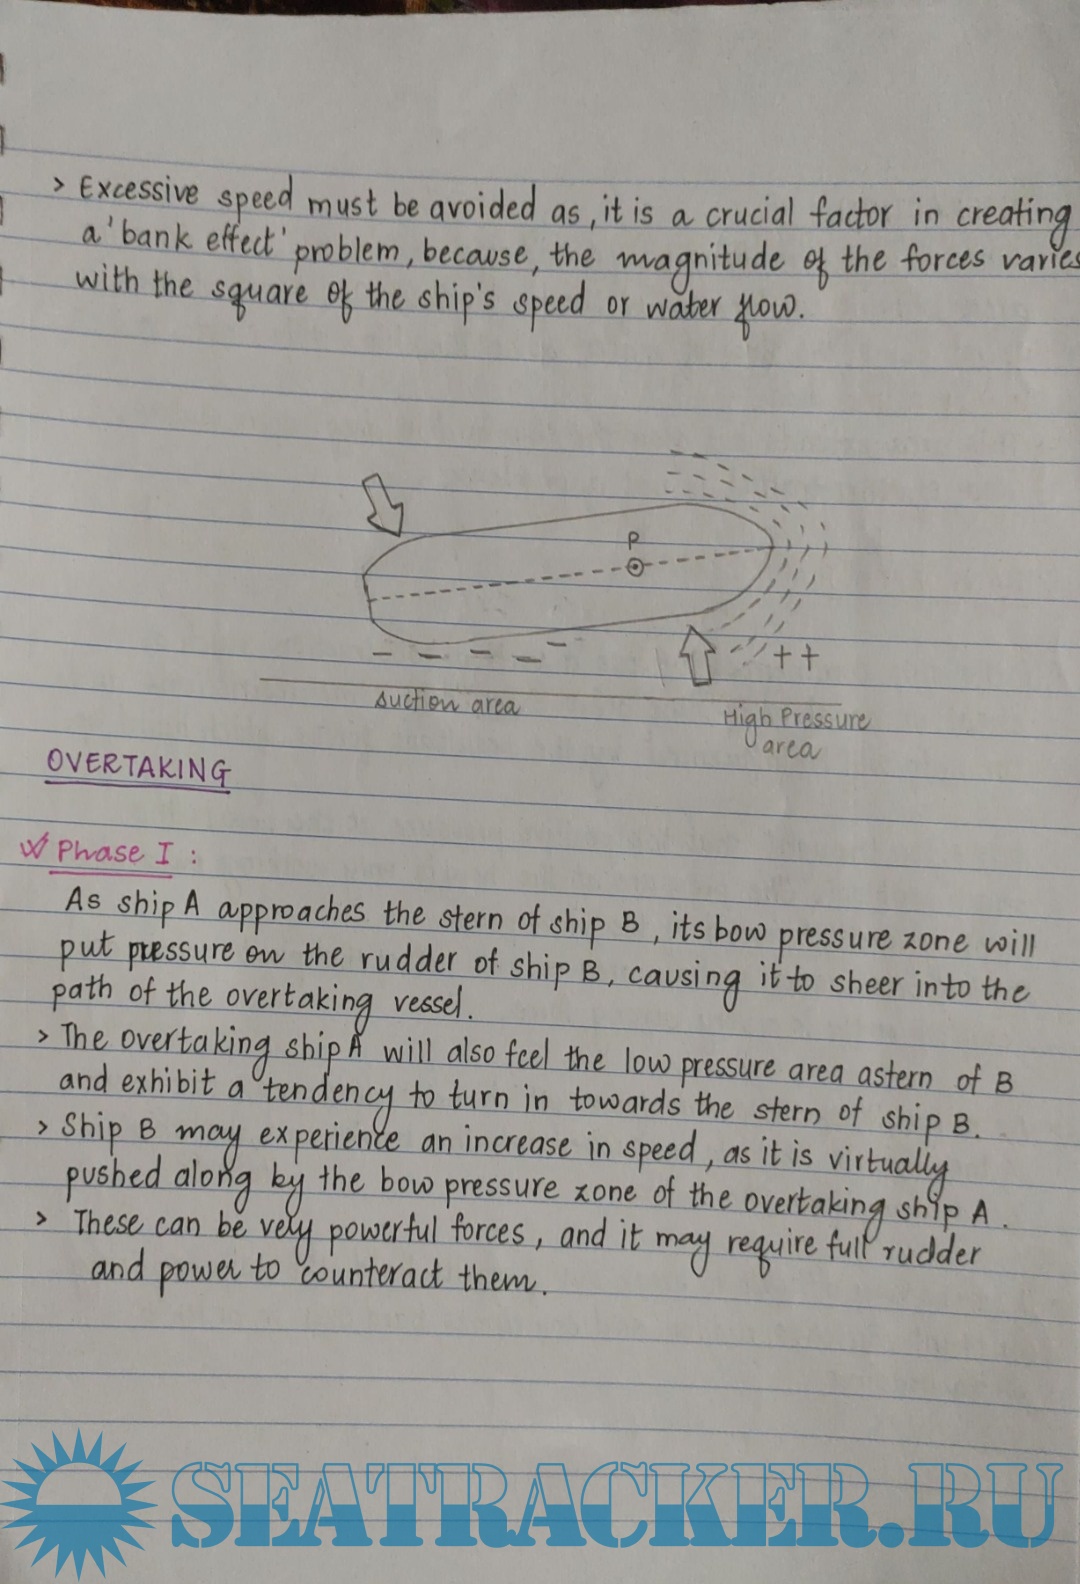 > Excessive speed must be avoided as, it is a crucial factor in creating
a 'bank effect' problem, because, the magnitude of the forces varies
with the square of the ship's speed or water flow.
P
++
suction area
High Pressure
area
OVERTAKING
Phase I :
As ship A approaches the stern of ship B, its bow pressure zone will
put pressure on the rudder of ship B, causing it to sheer into the
path of the overtaking vessel.
> The overtaking ship A will also feel the low pressure area astern of B
and exhibit a tendency to turn in towards the stern of ship B.
> Ship B may experience an increase in speed, as it is virtually
pushed along by the bow pressure zone of the overtaking ship A.
> These can be very powerful forces, and it may require full rudder
and power to counteract them.
SEATRACKER.RU